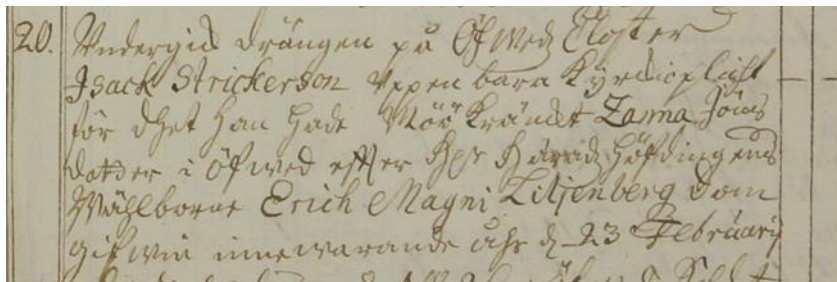 20. Undergick drängen på Öfweds Closter
Isack Strickerson Uppenbara Kyrckioplicht
för dhet han hade Möökränckt Zanna Jöns
dotter i Öfwed effter H:r Häradzhöfdingens
Wählborne Erich Magni Liljenberg Dom
gifwin innewarande åhr d. 23 Februarij